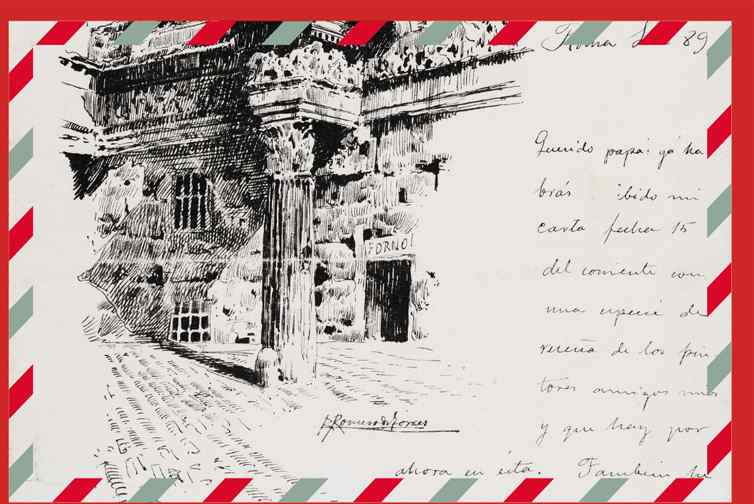 Roma 89
Querido papá: ya ha
brás ibido mi
carta fecha 15
del corriente con
una especie de
reseña de los pin
tores amigos mios
y que hay por
ahora en ésta. Tambien he
FORNO
Romero de Torres